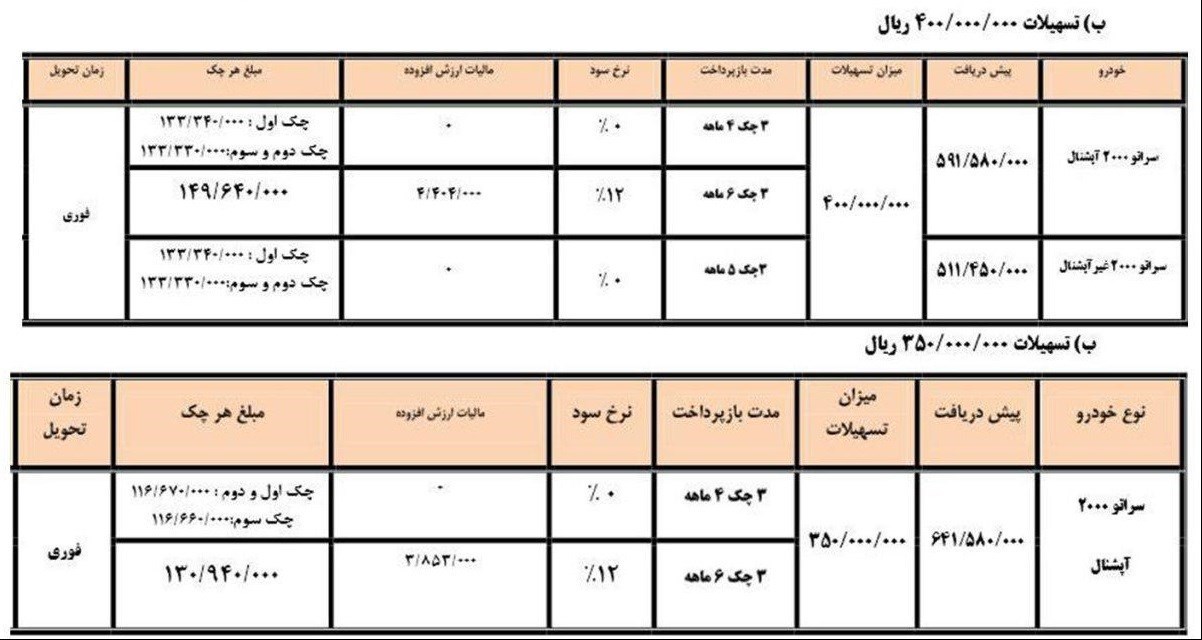 ب) تسهیلات ۴۰۰/۰۰۰/۰۰۰ ریال
خودرو پیش دریافت میزان تسهیلات مدت بازپرداخت نرخ سود مالیات ارزش افزوده مبلغ هر چک زمان تحویل
سراتو ۲۰۰۰ آپشنال ۵۹۱/۵۸۰/۰۰۰ ۴۰۰/۰۰۰/۰۰۰ ۳ چک ۴ ماهه ٪ ۰ ۰ چک اول : ۱۳۳/۳۴۰/۰۰۰
چک دوم و سوم:۱۳۳/۳۳۰/۰۰۰
۳ چک ۶ ماهه ٪۱۲ ۴/۴۰۴/۰۰۰ ۱۴۹/۶۴۰/۰۰۰ فوری
سراتو ۲۰۰۰ غیر آپشنال ۵۱۱/۴۵۰/۰۰۰ ۳چک ۵ ماهه ٪ ۰ ۰ چک اول : ۱۳۳/۳۴۰/۰۰۰
چک دوم و سوم:۱۳۳/۳۳۰/۰۰۰
ب) تسهیلات ۳۵۰/۰۰۰/۰۰۰ ریال
نوع خودرو پیش دریافت میزان تسهیلات مدت بازپرداخت نرخ سود مالیات ارزش افزوده مبلغ هر چک زمان تحویل
سراتو ۲۰۰۰ آپشنال ۶۴۱/۵۸۰/۰۰۰ ۳۵۰/۰۰۰/۰۰۰ ۳ چک ۴ ماهه ٪ ۰ ۰ چک اول و دوم : ۱۱۶/۶۷۰/۰۰۰
چک سوم:۱۱۶/۶۶۰/۰۰۰
۳ چک ۶ ماهه ٪۱۲ ۳/۸۵۳/۰۰۰ ۱۳۰/۹۴۰/۰۰۰ فوری